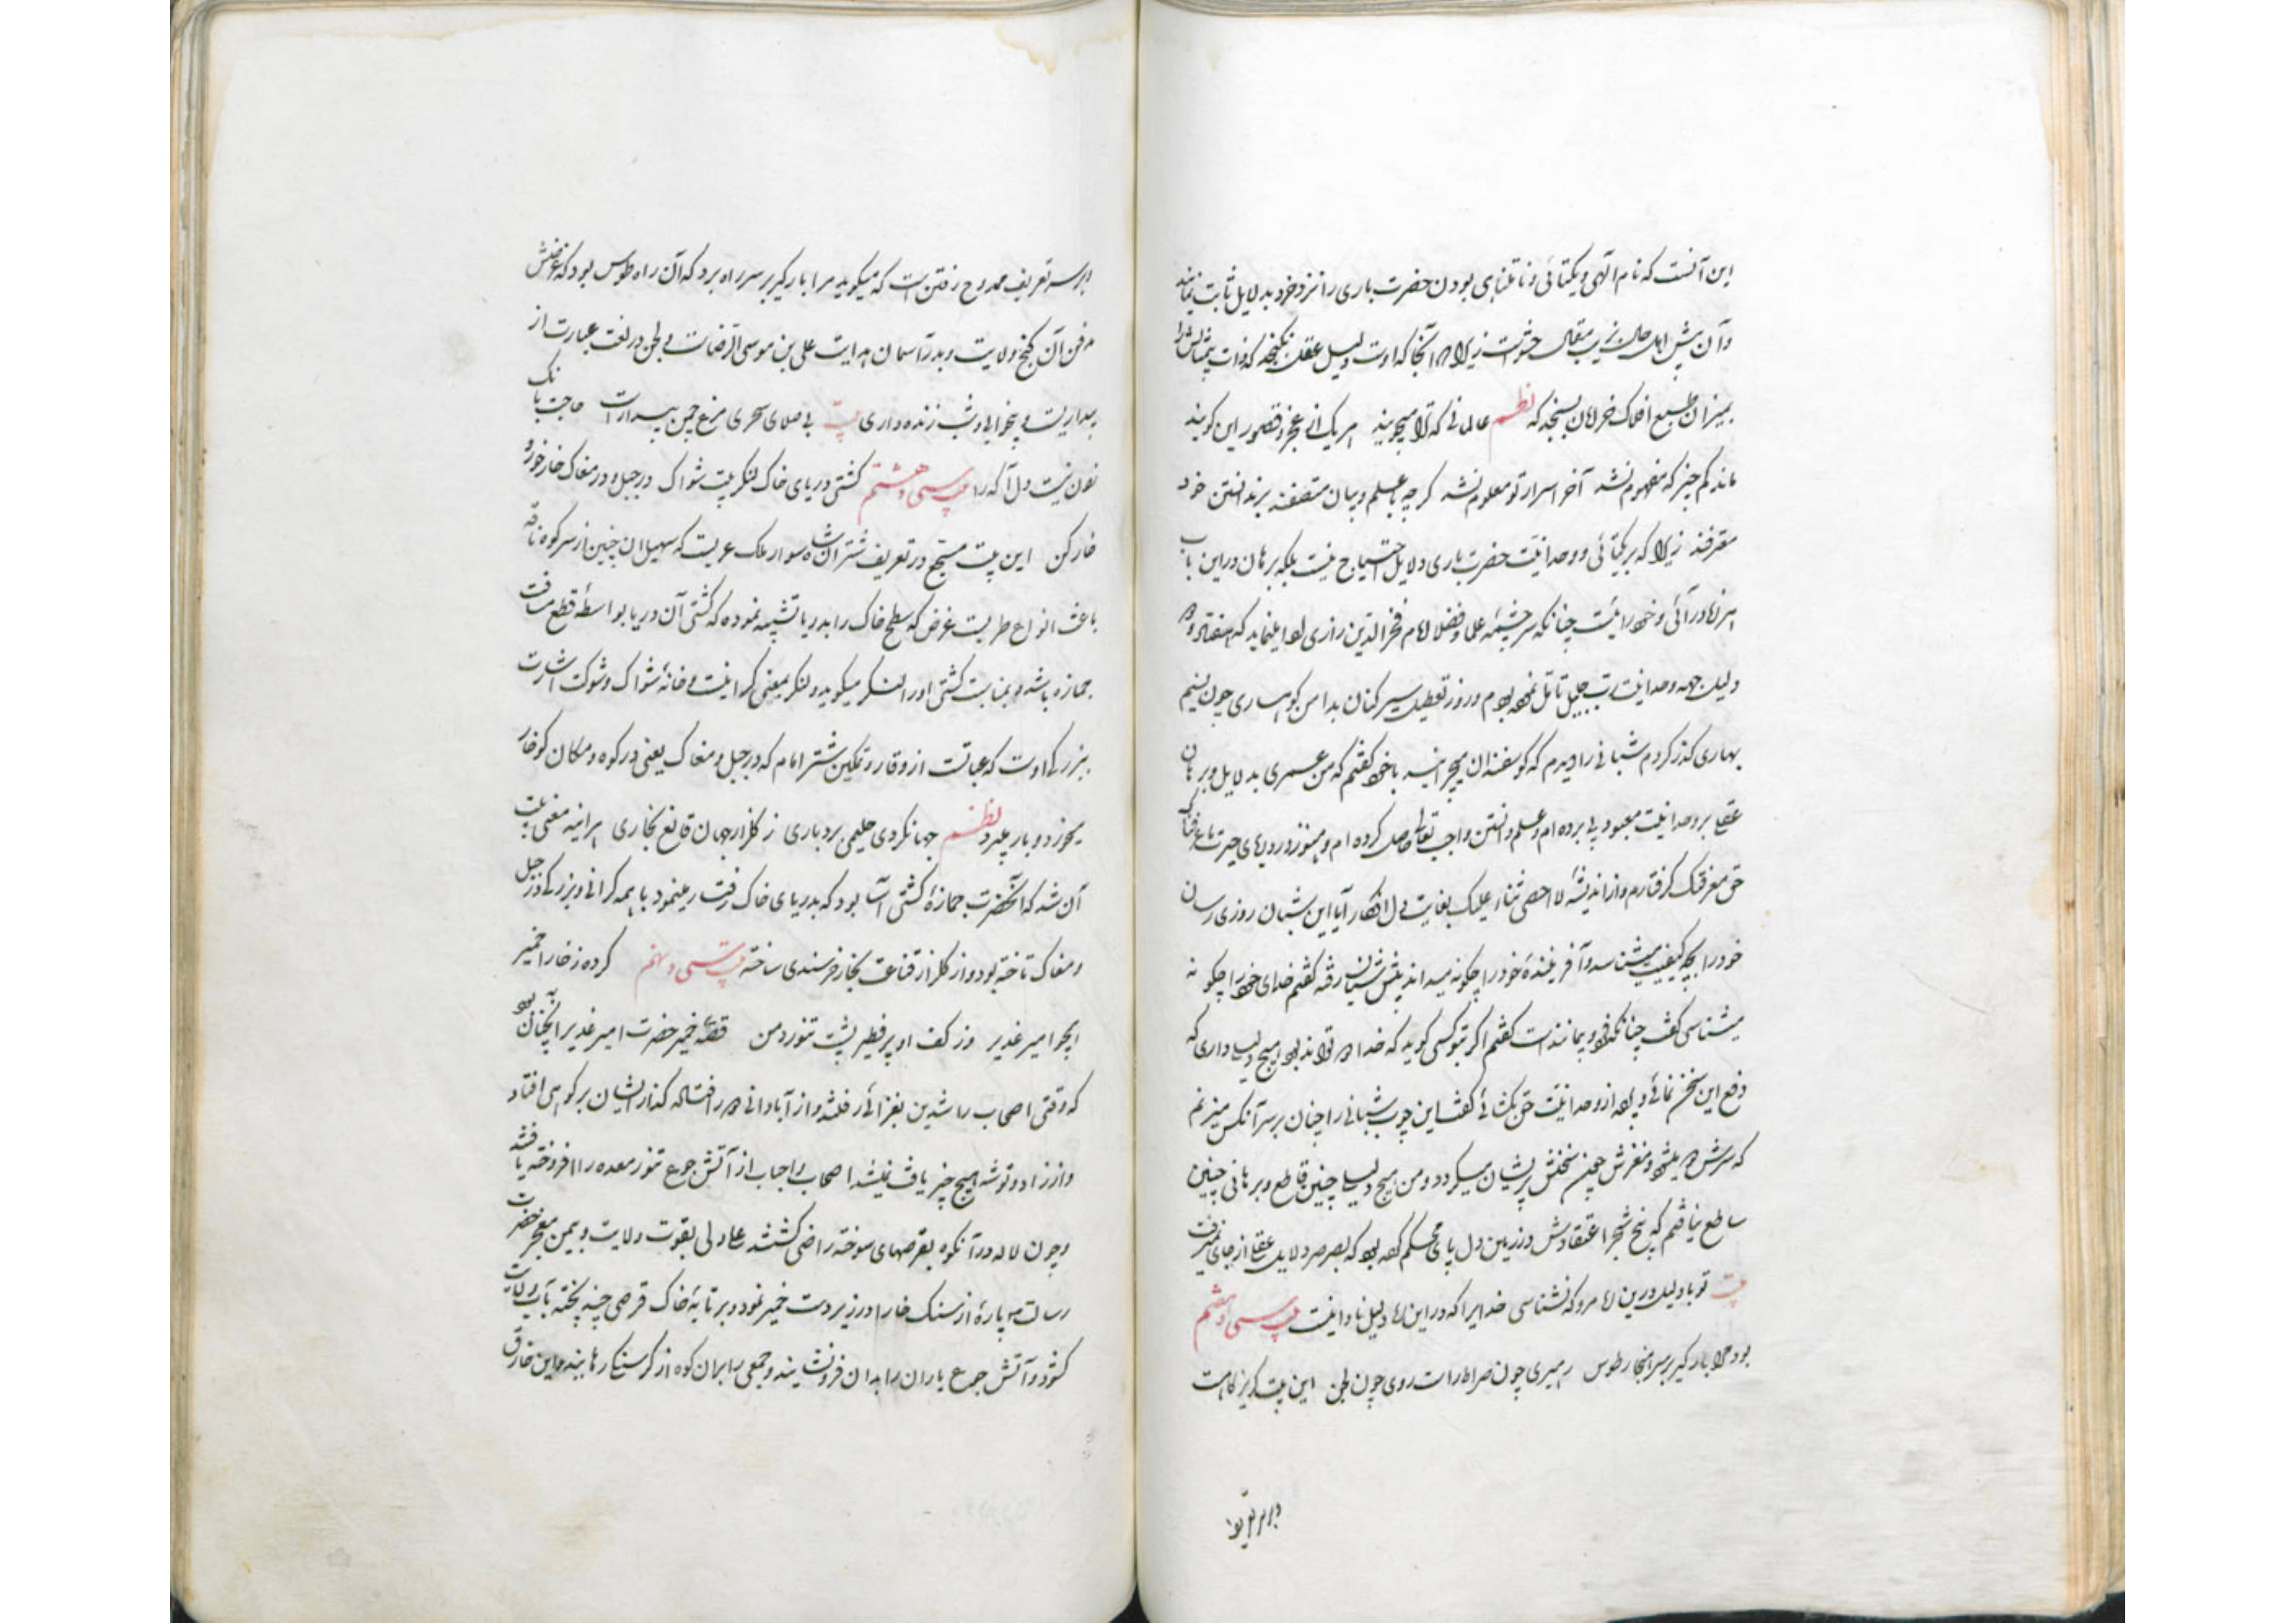 این آنست که نام الهی و یکتائی و نامتناهی بودن حضرت باری را نزد خرد بدلایل ثابت نمایند
و آن پیش اهل حال زیب مقال خوش نیست زیرا که آنجا که اوست دلیل عقلی نگنجد که ذات بیمثالش را
بمیزان طبع ادراک خردمندان بسنجد که نظم عالمانی که ترا میجویند هر یک از عجز و قصور این گویند
ماند کم چیز که مفهوم نشد آخر اسرار تو معلوم نشد کرچه بعلم و بیان متصفند بر ندانستن خود
معترفند زیرا که بر یکتائی و وحدانیت حضرت باری دلایل احتیاج نیست بلکه برهان در این باب
چنانکه سرچشمه علما و فضلا امام فخر الدین رازی
دلیل جهة وحدانیت رب جلیل تأمل نموده بودم و روز تعطیل سیر کنان بدامن کوهساری چون نسیم
بهاری گذر کردم شبانی را دیدم که گوسفندان میچرانید با خود گفتم که من عمری بدلایل و برهان
عقلی بر وحدانیت معبود پی برده ام و علم دانستن واجب تعالی حاصل کرده ام و هنوز در دریای حیرت ما عرفناک
حق معرفتک گرفتارم و از اندیشهٔ لا احصی ثناء علیک بغایت دل افکار آیا این شبان روزی رسان
خود را بچه کیفیت میشناسد و آفرینندهٔ خود را چگونه میداند پیش شبان رفته گفتم خدای خود را چگونه
میشناسی گفت چنانکه فرد و بیمانند است گفتم اگر بتو کسی گوید که خدا دو تواند بود هیچ دلیل داری که
دفع این سخن نمائی و پرده از وحدانیت حق بگشائی گفت این چوب شبانی را چنان بر سر آنکس میزنم
که سرش دو نیم شود و مغزش چون سخنش پریشان میگردد و من هیچ دلیلی چنین قاطع و برهانی چنین
ساطع نیافتم که بیخ شجر اعتقادش در زمین دل پای محکم کرده بود که بصرصر دلایل عقلی از جای نمیرفت
بیت تو با دلیل درین راه مرو که نشناسی خدایرا که در این راه دلیل نادانیست بیت سی و هفتم
بود مرا بار گیر بر سر انجار طوس رهبری چون صراط راست روی چون لجن این بیت گریز گاه است
و بر سر تعریف
و بر سر تعریف ممدوح رفتن است که میگوید مرا بارگیر بر سر راه برد که آن راه طوس بود که غرضش
مدفن آن گنج ولایت و بدر آسمان هدایت علی بن موسی الرضاست و لجن در لغت عبارت از
بیداریست و بیخوابی و شب زنده داری بیت بی صلای سحری مرغ چمن بیدار است حاجت بانک
نیست دل آگه را بیت سی و هشتم کشتی دریای خاک لنگر بیت شواک در جبل و در مغاک خار خور و
خار کن این بیت مسجع در تعریف شتران شاه سوار ملک عربست که سهیل از سر کوه ناقه
باعث انواع طربست غرض که سطح خاک را بدریا تشبیه نموده که کشتی آن دریا بواسطهٔ قطع مسافت
جمازه باشد و بمناسبت کشتی او را لنگر میگوید و لنگر بمعنی گرانیست و خانهٔ شواک و شوکت اشارت
بزرگی اوست که عبارتست از وقار و تمکین شتر امام که در جبل و مغاک یعنی در کوه و مکان گو خار
میخورد و بار میبرد نظم جهانگردی حلیمی بردباری ز گلزار جهان قانع بخاری هر آینه معنی بیت
آن شد که آنحضرت جمازهٔ کشتی آسا بود که بدریای خاک رفت رهنمود با همه گرانی و بزرگی در جبل
و مغاک تاخته بود و از گلزار قناعت بخار خرسندی ساخته بیت سی و نهم کرده ز خارا خمیر
همچو امیر غدیر وز کف او پر فطیر پشت تنور دمن قصهٔ خمیر حضرت امیر غدیر آنچنان بود
که وقتی اصحاب راشدین بغزائی رفتند و از آبادانی دور افتاده گذار ایشان بر کوهی افتاد
و از زاد و توشه هیچ چیز یافت نمیشد اصحاب و احباب از آتش جوع تنور معده را افروخته یافتند
و چون لاله در آن کوه بقرصهای سوخته راضی گشتند علی ولی بقوت ولایت و بیمن معجز حضرت
رسالت پارهٔ از سنگ خارا در زیر دست خمیر نمود و بر تابهٔ خاک قرصی چند پخته بآب ولایت
گشود و آتش جوع یاران را بدان فرو نشانید و جمعی را بر آن کوه از گرسنگی رهانید و این خارق